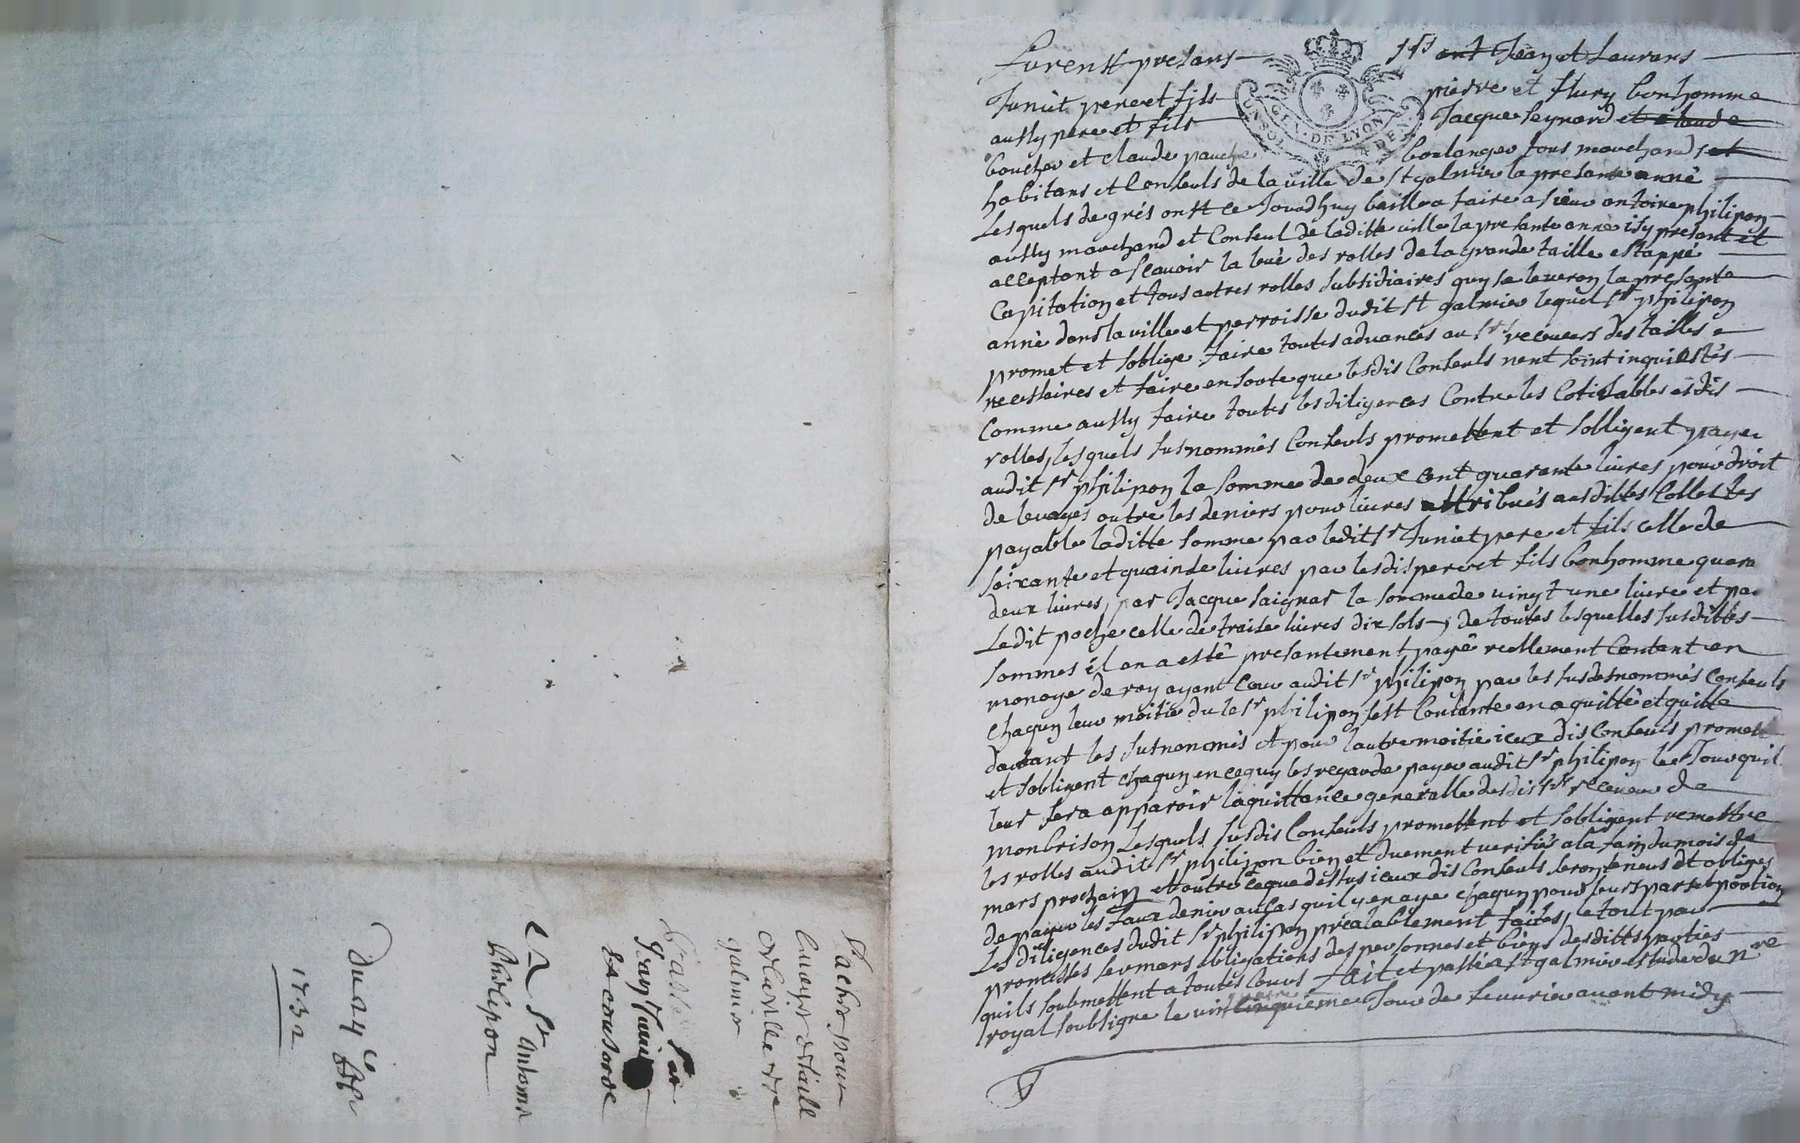 Furent presans srs ent Jean et Laurans
Juniet pere et fils pierre et flury bonhomme
GEN. DE LYON
aussy pere et fils Jacque seynard et claude
boucher et claude pauche boulanger tous marchands et
habitans et Consuls de la ville de st galmier la presante anné
Lesquels de grés ontt ce Jourdhuy baillé a faire a sieur antoine philipon
aussy marchand et Consul de laditte ville la presante anné isy presant et
acceptant a scavoir la levé des rolles de la grande taille estappé
Capitation et tous autres rolles subsidiaires quy se leveron la presante
anné dans la ville et parroisse dudit st galmier lequel sr philipon
promet et soblige faire toutes advances au srs receveurs des tailles
necessaires et faire en sorte que lesdis Consuls nent soint inquiettés
Comme aussy faire toutes les diligences Contre les Cotisables esdis
rolles, lesquels susnommés Consuls promettent et sobligent payer
audit sr philipon la somme de deux cent quarante livres pour droit
de levayes outre les deniers pour livres attribués ausdittes Collectes
payable laditte somme par ledit sr Juniet pere et fils celle de
soixante et quainse livres par lesdis pere et fils bonhomme quara
deux livres, par Jacque saignar la somme de vingt une livre et par
Ledit poche celle de traise livres dix sols, de toutes lesquelles susdittes
sommes il en a esté presantement payé reellement Contant en
monoye de roy ayant Cour audit sr philipon par les susdesnommés Consuls
Chaqun leur moitié du le sr philipon sest Contante en a quitté et quitte
dautant les susnommés et pour lautre moitié iceux dis Consuls promett
et sobligent chaqun en cequy les regarde payer audit sr philipon le Jour quil
leur fera apparoir laquittance generalle desdis srs receveur de
monbrison Lesquels susdis Consuls promettent et sobligent remettre
les rolles audit sr philipon bien et duement verifiés a la fain du mois de
mars prochain et outre ceque dessus iceux dis Consuls seron teneus et obliges
de payer les faux denier au Cas quil y en aye chaqun pour leurs part et portion
Les diligences dudit sr philipon prealablement faites, le tout par
promesses sermans obligations des personnes et biens desdittes parties
quils soubmettent a toutes Cours fait et passé a st galmier estude du nre
royal soubsigne le vint cinquieme Jour de feuvrier avant midy
pour
galmier
Passé Par
Jean Juniet
et consorts
A Sr Antoine
Philipon
Du 24 fe
1732